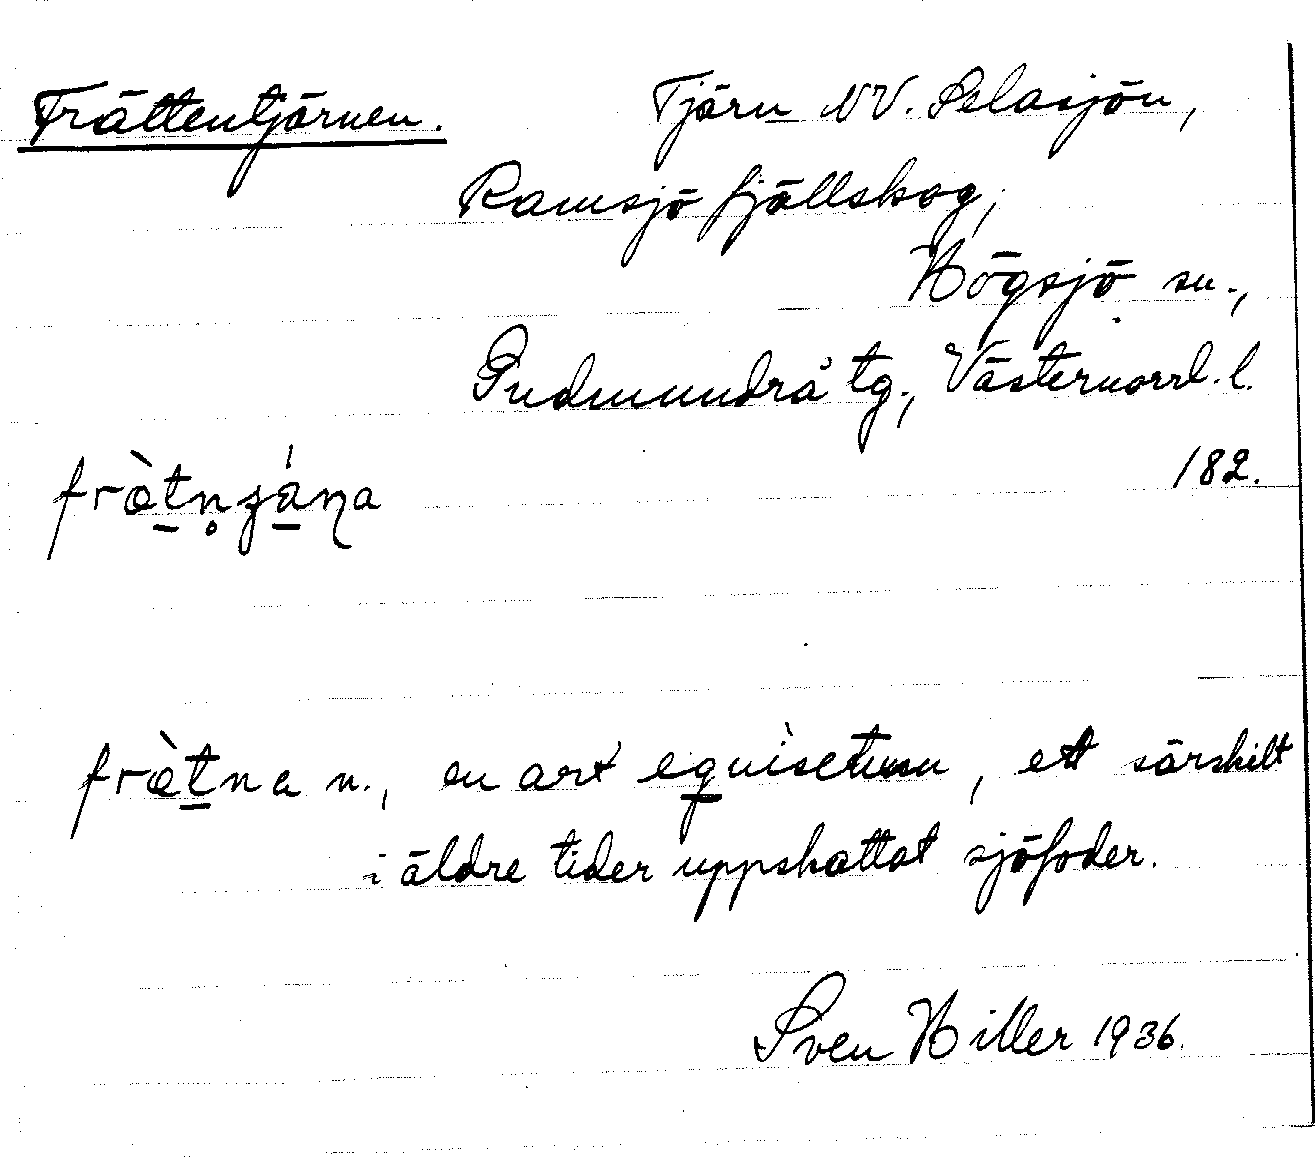 Frättentjärnen. Tjärn NV. Selasjön,
Ramsjö fjällskog,
Högsjö sn.,
Gudmundrå tg., Västernorrl. l.
182.
fræ̀t̠n̥ʒá̠ɳa
fræ̀t̠na n., en art equisetum, ett särskilt
i äldre tider uppskattat sjöfoder.
Sven Hiller 1936.